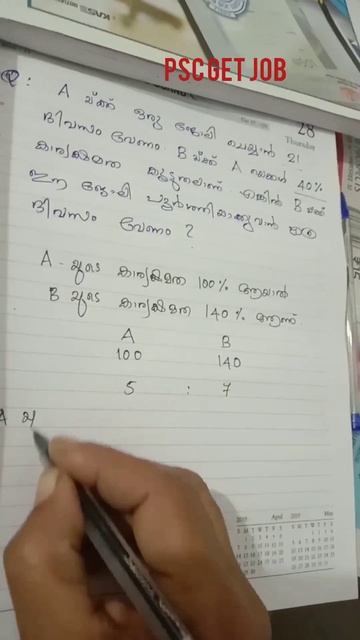 PSC GET JOB
28
Thursday
A യ്ക്ക് ഒരു ജോലി ചെയ്യാൻ 21
ദിവസം വേണം. B യ്ക്ക് A യെക്കാൾ 40%
കാര്യക്ഷമത കൂടുതലാണ്. എങ്കിൽ B യ്ക്ക്
ഈ ജോലി പൂർത്തിയാക്കുവാൻ എത്ര
ദിവസം വേണം ?
A - യുടെ കാര്യക്ഷമത 100% ആയാൽ
B യുടെ കാര്യക്ഷമത 140% ആണ്
A B
100 140
5 : 7
A യു